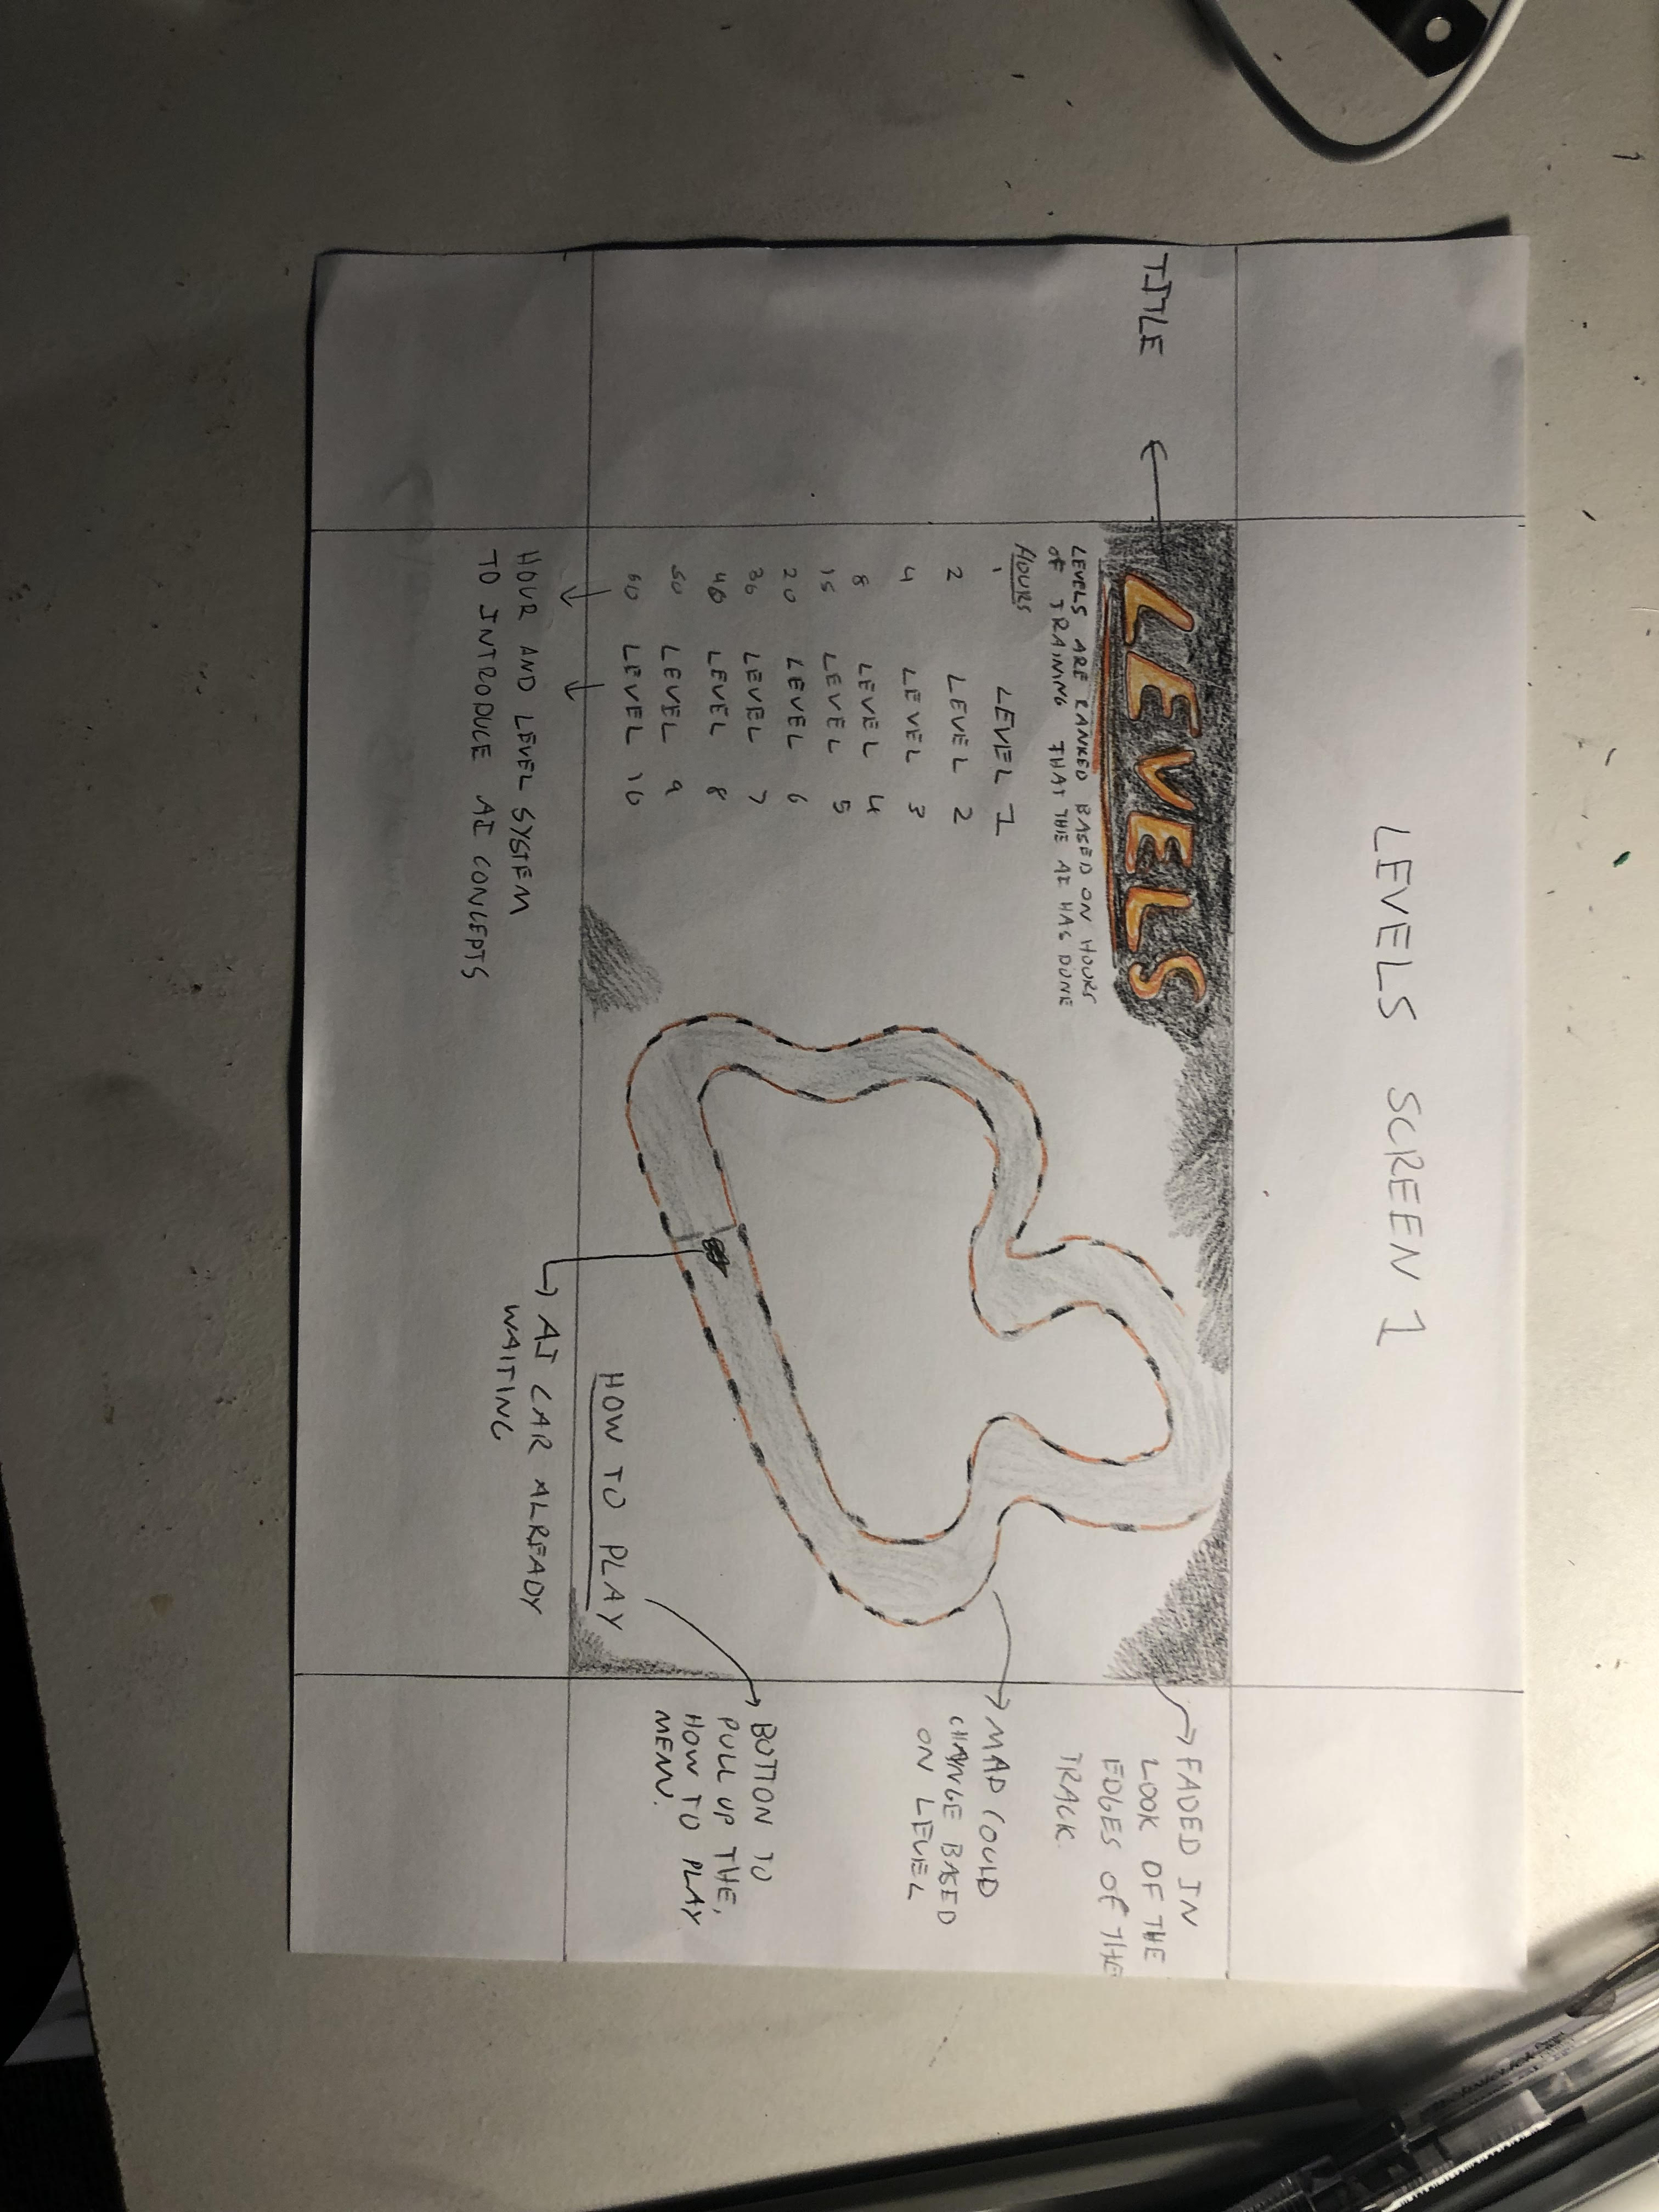 LEVELS SCREEN 1
TITLE
LEVELS
LEVELS ARE RANKED BASED ON HOURS
OF TRAINING THAT THE AI HAS DONE
HOURS
1 LEVEL 1
2 LEVEL 2
4 LEVEL 3
8 LEVEL 4
15 LEVEL 5
20 LEVEL 6
30 LEVEL 7
40 LEVEL 8
50 LEVEL 9
60 LEVEL 10
HOUR AND LEVEL SYSTEM
TO INTRODUCE AI CONCEPTS
HOW TO PLAY
AI CAR ALREADY
WAITING
FADED IN
LOOK OF THE
EDGES OF THE
TRACK.
MAP COULD
CHANGE BASED
ON LEVEL
BOTTON TO
PULL UP THE,
HOW TO PLAY
MENU.